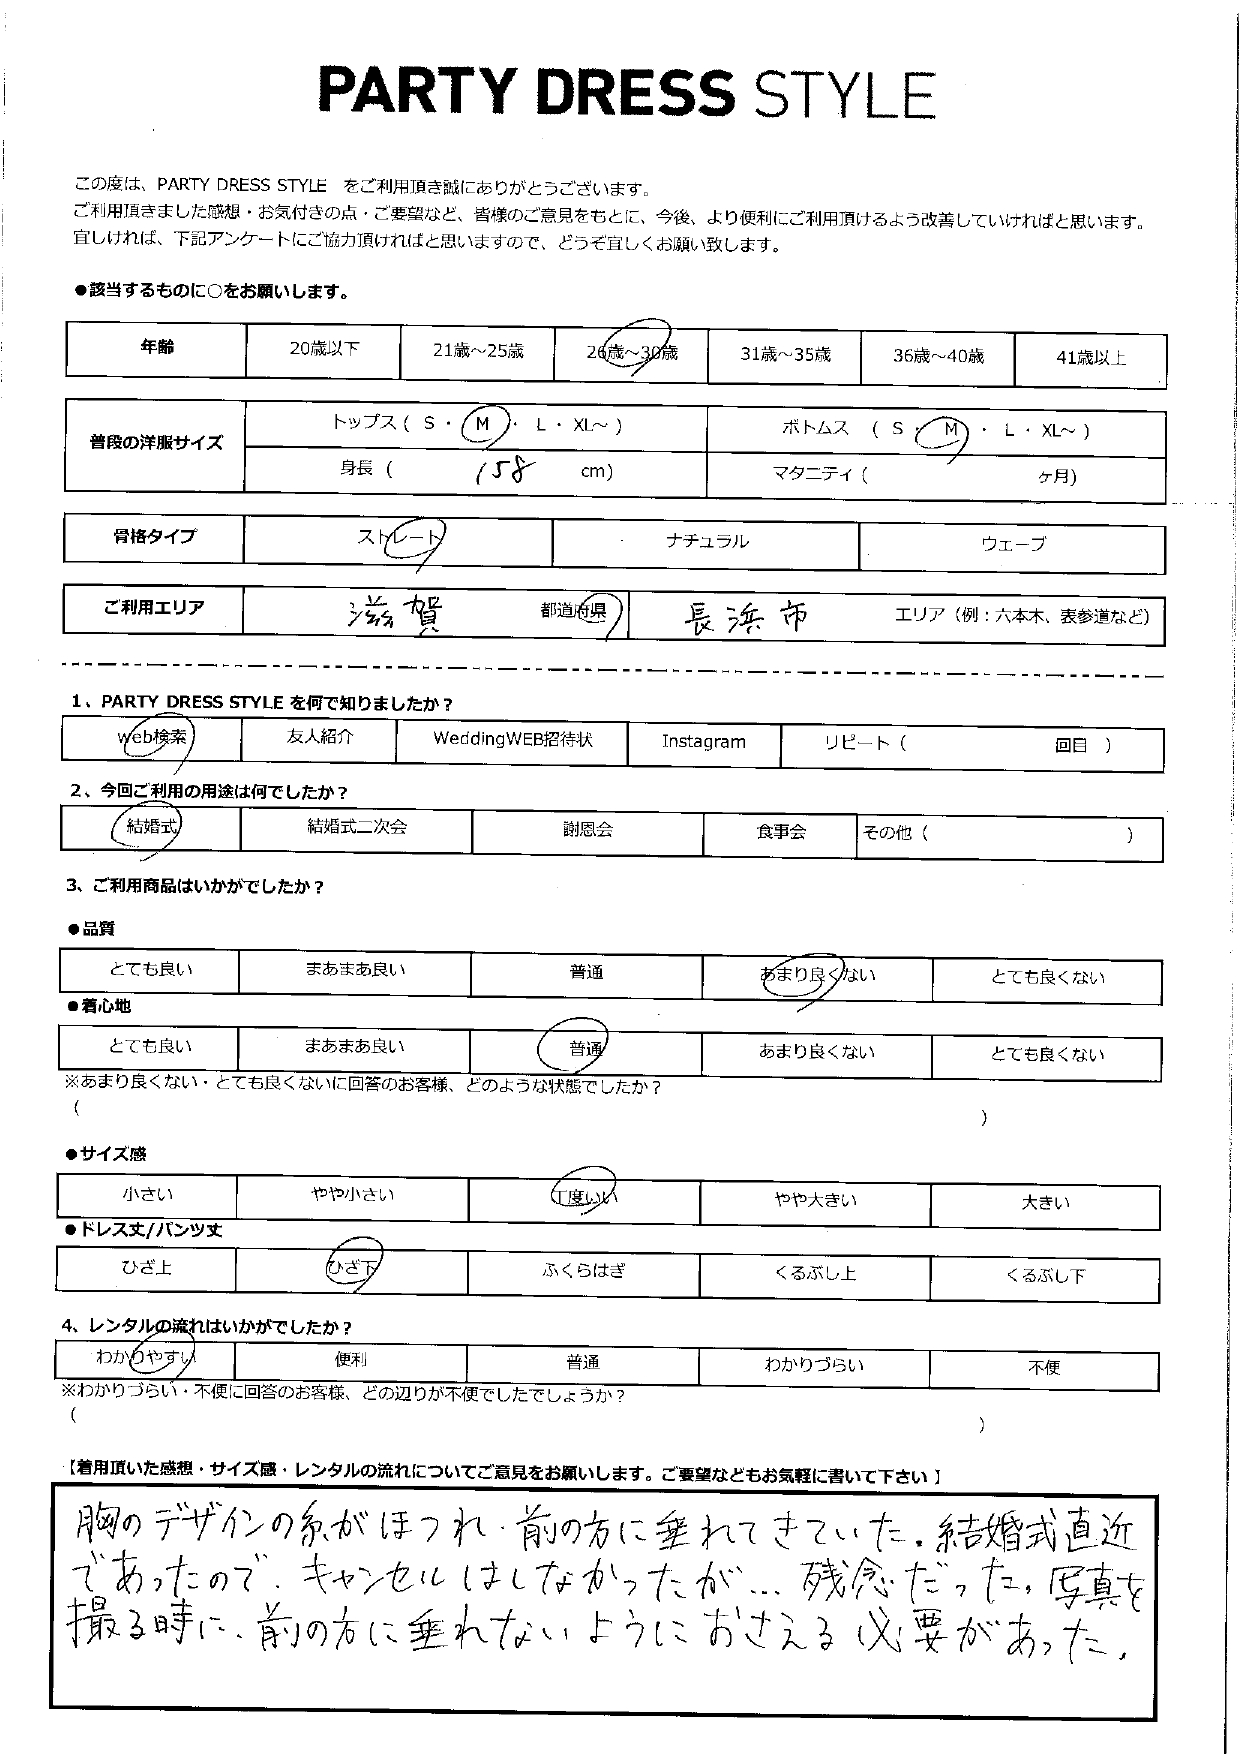 PARTY DRESS STYLE
この度は、PARTY DRESS STYLE をご利用頂き誠にありがとうございます。
ご利用頂きました感想・お気付きの点・ご要望など、皆様のご意見をもとに、今後、より便利にご利用頂けるよう改善していければと思います。
宜しければ、下記アンケートにご協力頂ければと思いますので、どうぞ宜しくお願い致します。
●該当するものに○をお願いします。
年齢 20歳以下 21歳～25歳 26歳～30歳 31歳～35歳 36歳～40歳 41歳以上
普段の洋服サイズ トップス ( S ・ M ・ L ・ XL～ ) ボトムス ( S ・ M ・ L ・ XL～ )
身長 ( 158 cm) マタニティ ( ヶ月)
骨格タイプ ストレート ナチュラル ウェーブ
ご利用エリア 滋賀 都道府県 長浜市 エリア（例：六本木、表参道など）
1、PARTY DRESS STYLE を何で知りましたか？
web検索 友人紹介 WeddingWEB招待状 Instagram リピート ( 回目 )
2、今回ご利用の用途は何でしたか？
結婚式 結婚式二次会 謝恩会 食事会 その他 ( )
3、ご利用商品はいかがでしたか？
●品質
とても良い まあまあ良い 普通 あまり良くない とても良くない
●着心地
とても良い まあまあ良い 普通 あまり良くない とても良くない
※あまり良くない・とても良くないに回答のお客様、どのような状態でしたか？
( )
●サイズ感
小さい やや小さい 丁度いい やや大きい 大きい
●ドレス丈/パンツ丈
ひざ上 ひざ下 ふくらはぎ くるぶし上 くるぶし下
4、レンタルの流れはいかがでしたか？
わかりやすい 便利 普通 わかりづらい 不便
※わかりづらい・不便に回答のお客様、どの辺りが不便でしたでしょうか？
( )
【着用頂いた感想・サイズ感・レンタルの流れについてご意見をお願いします。ご要望などもお気軽に書いて下さい】
胸のデザインの糸がほつれ、前の方に垂れてきていた。結婚式直近
であったので、キャンセルはしなかったが… 残念だった。写真を
撮る時に、前の方に垂れないようにおさえる必要があった。